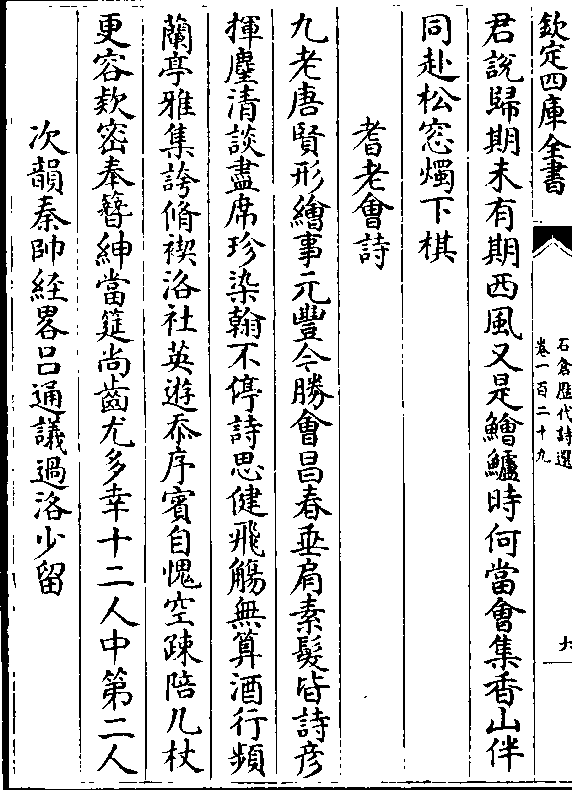 欽定四庫全書
石倉歴代詩選
卷一百二十九
六
君說歸期未有期西風又是鱠鱸時何當會集香山伴
同赴松窓燭下棋
耆老會詩
九老唐賢形繪事元豐今勝會昌春垂肩素髮皆詩彦
揮麈清談盡席珍染翰不停詩思健飛觴無算酒行頻
蘭亭雅集誇脩禊洛社英遊忝序賓自愧空疎陪几杖
更容欵密奉簪紳當筵尚齒尤多幸十二人中第二人
次韻秦帥経畧吕通議過洛少留